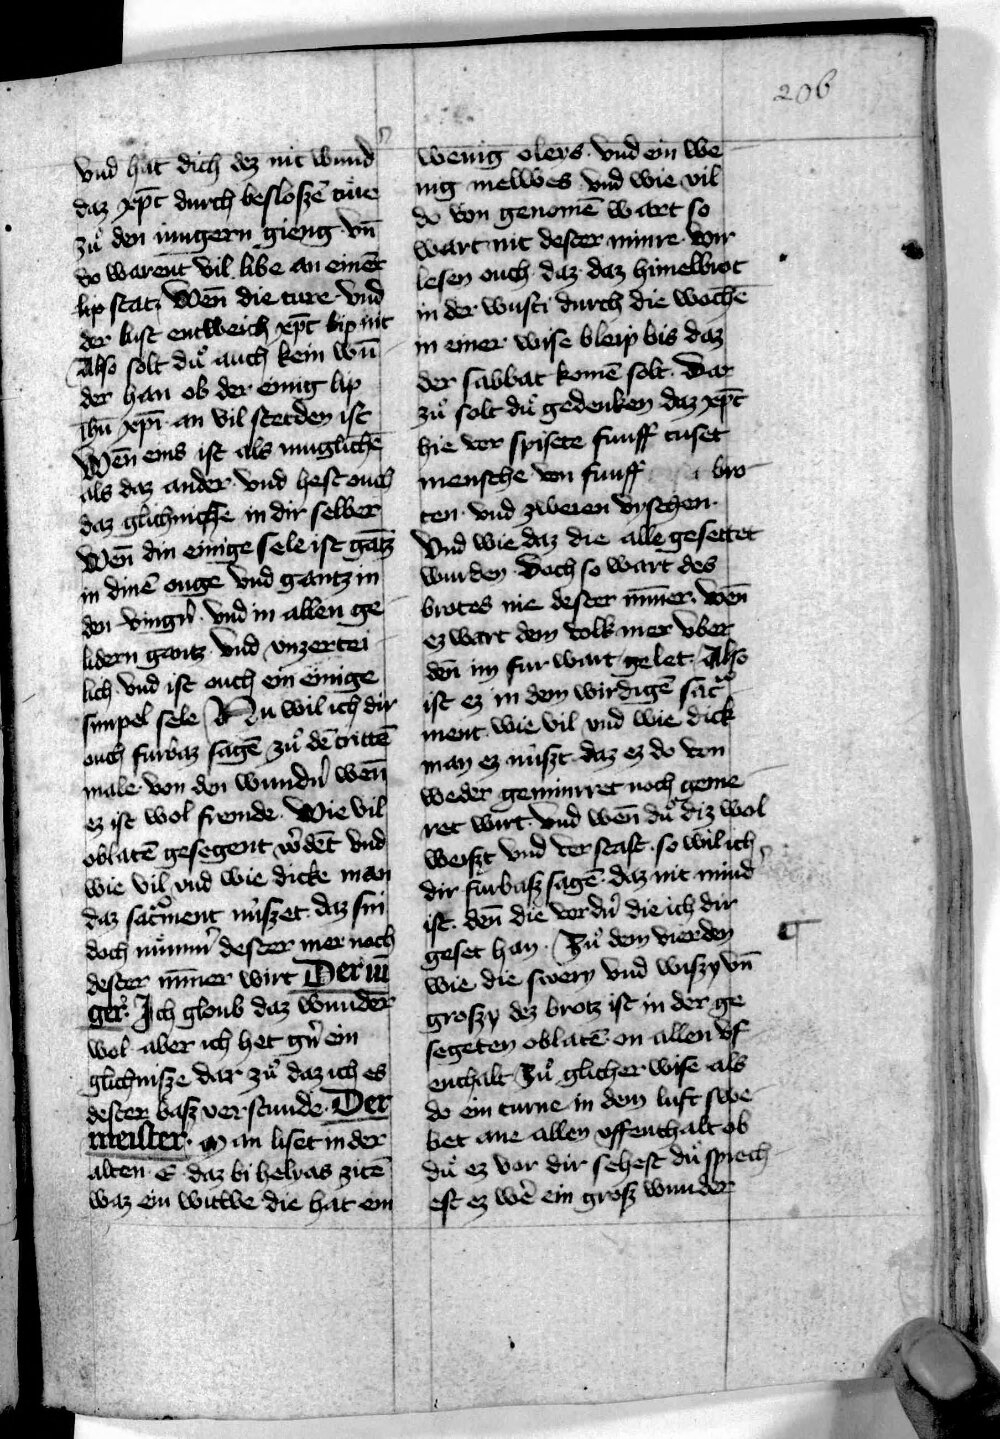 206
vnd hat dich dez nit wund᷑
daz xp̄c durch beslosze̅ tuͤre
zuͦ den iungern gieng vn̅
do warent vil libe an einer
lip stat, Wen̅ die ture vnd
der lust entweich xp̄c lip nit
Also solt duͦ auch kein wu̅
der han ob der einig lip
ih̅u xp̅i an vil stetden ist
Wen̅ eins ist als muglich̅e
als daz ander vnd hest ouch
daz glichnisse in dir selber
Wen̅ din einige sele ist gātz
in dine̅ ouge vnd gantz in
den vingn᷑ vnd in allen ge
lidern gantz vnd vnzertei
lich vnd ist ouch ein einige
simpel sele Nu wil ich dir
ouch furbaz sage̅ zuͦ de̅ tritte̅
male von den wundn᷑ wen̅
ez ist wol fremde. Wie vil
oblate̅ gesegent w᷑de̅t vnd
wie vil vnd wie dicke man
daz sac̅ment nuͤszet daz sin
doch nuͤmm᷑ dester mer noch
dester mi̅ner wirt Der iu̅
ger. Ich gloub daz wunder
wol aber ich het gn᷑ ein
glichnisze dar zuͦ daz ich es
dester basz verstunde. Der
meister. Man liset in der
alten E daz bi helyas zite̅
waz ein witwe die hat ein
wenig olers. vnd ein we
nig melwes vnd wie vil
do von genome̅ wart so
wart nit dester minre. Wir
lesen ouch daz daz himelbrot
in der wusti durch die woche̅
in einer wise bleip bis daz
der sabbat kome̅ solt. Dar
zuͦ solt duͦ gedenken daz xp̄c
hie vor spisete funff tuset
mensche von funff bro
ten vnd zweien vyschen.
Vnd wie daz die alle gesettet
wurden Doch so wart des
brotes nie dester mi̅ner. Wen̅
ez wart dem volk mer vber
den̅ im fur wart gelet. Also
ist ez in dem wirdige̅ sac̅
ment. wie vil vnd wie dick
man ez nuͤszt. daz ez do von
weder geminrret noch geme
ret wirt. vnd wen̅ duͦ diz wol
weiszt vnd verstast. so wil ich
dir furbasz sage̅. daz nit mind᷑
ist. den̅ die vordn᷑ die ich dir
geset han. Zuͦ dem vierden
wie die swery vnd wiszy vn̅
groszy dez brotz ist in der ge
segeten oblate̅ on allen vf
enthalt Zuͦ glicher wise als
do ein turne in dem luft swe
bet ane allen vffenthalt ob
duͦ ez vor dir sehest duͦ sprech
est ez we᷑ ein grosz wunder